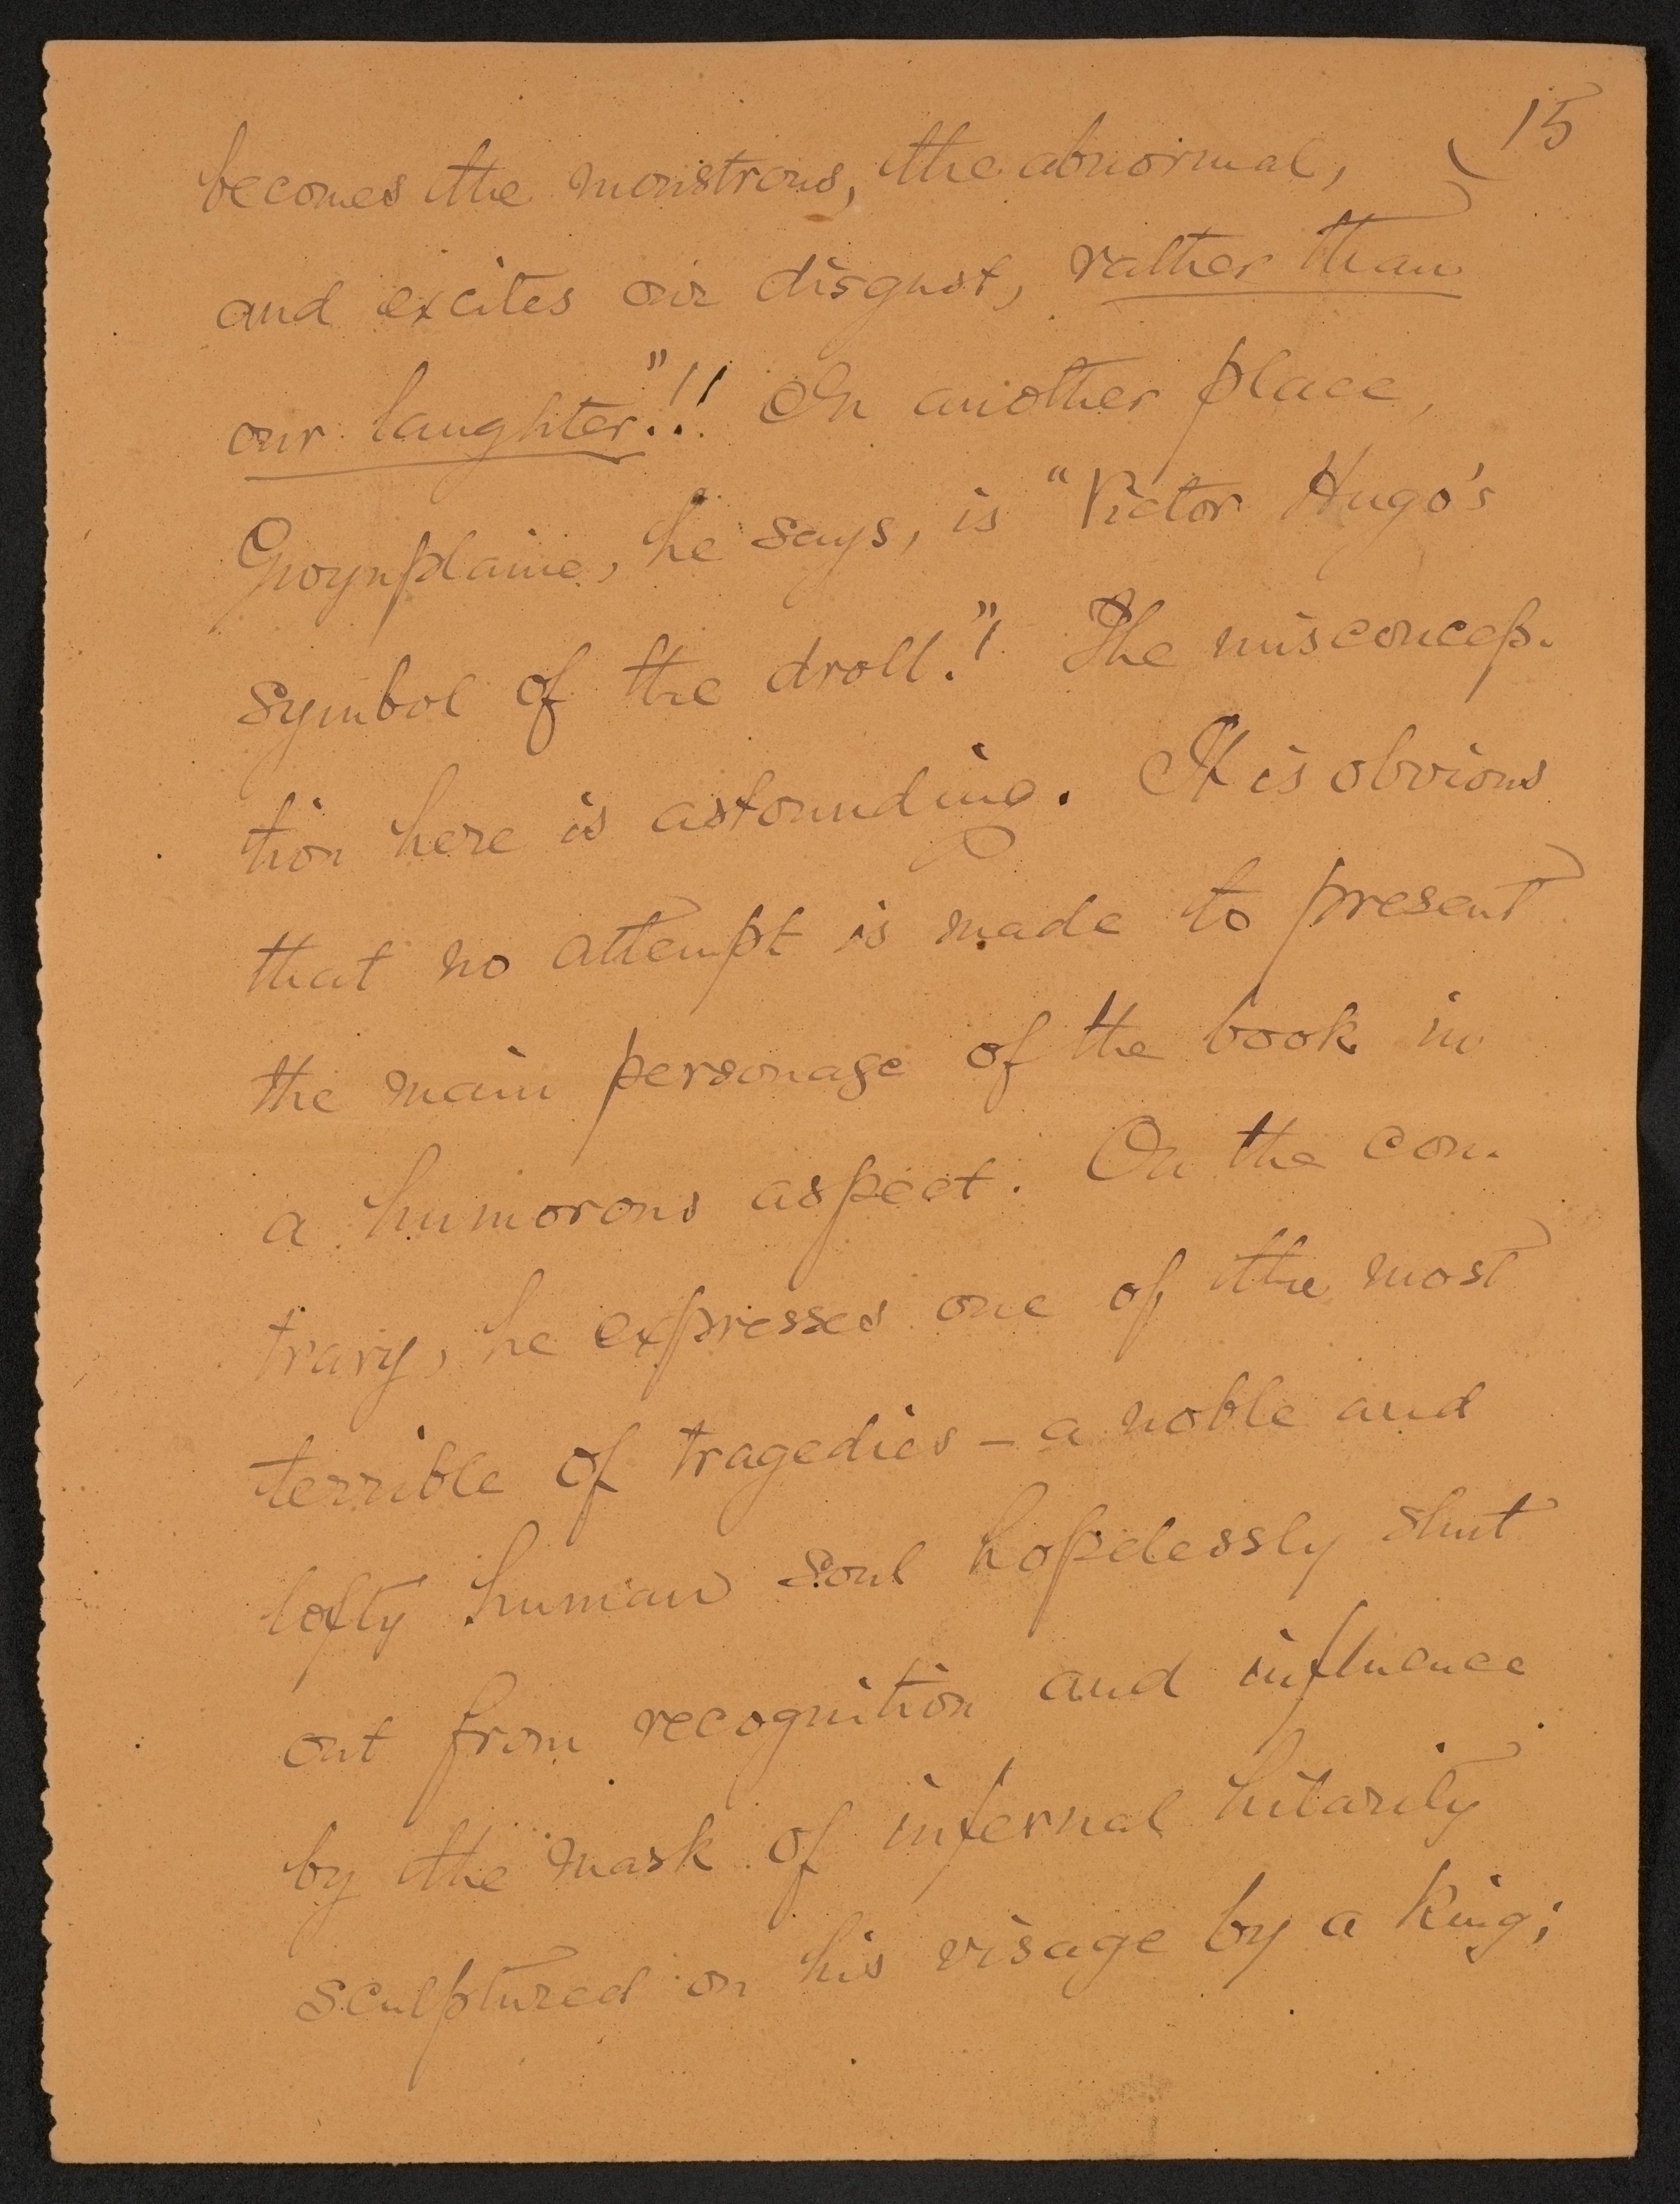 15
becomes the monstrous, the abnormal,
and excites our disgust, rather than
our laughter."!! In another place,
Gwynplaine, he says, is "Victor Hugo's
symbol of the droll."! The misconcep-
tion here is astounding. It is obvious
that no attempt is made to present
the main personage of the book in
a humorous aspect. On the con-
trary, he expresses one of the most
terrible of tragedies – a noble and
lofty human soul hopelessly shut
out from recognition and influence
by the mask of infernal hilarity
sculptured on his visage by a King;